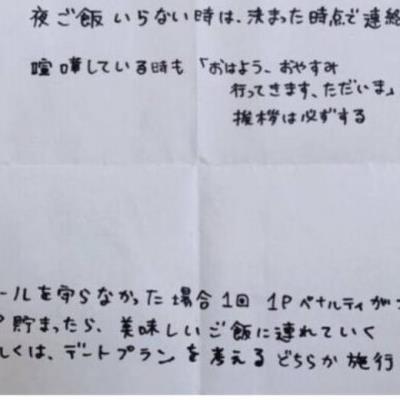 夜ご飯いらない時は、決まった時点で連絡
喧嘩している時も「おはよう、おやすみ
行ってきます、ただいま」
挨拶は必ずする
ールを守らなかった場合1回 1Pペナルティが
貯まったら、美味しいご飯に連れていく
しくは、デートプランを考えるどちらか施行